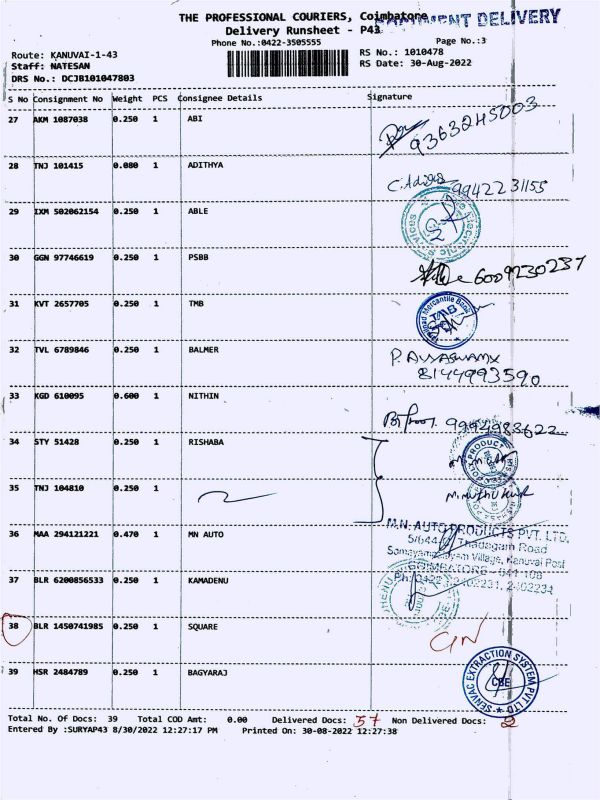 THE PROFESSIONAL COURIERS, Coimbatore
DELIVERY
Delivery Runsheet - P43
Phone No.:0422-3505555
Page No.:3
Route: KANUVAI-1-43
RS No.: 1010478
Staff: NATESAN
RS Date: 30-Aug-2022
DRS No.: DCJB101047803
S No Consignment No Weight PCS Consignee Details Signature
27 AKM 1087038 0.250 1 ABI
9363245003
28 TNJ 101415 0.080 1 ADITHYA
9942231155
29 IXM 502062154 0.250 1 ABLE
30 GGN 97746619 0.250 1 PSBB
6009230237
31 KVT 2657705 0.250 1 TMB
Mercantile Bank
32 TVL 6789846 0.250 1 BALMER
8144993590
33 KGD 610095 0.600 1 NITHIN
9994983622
34 STY 51428 0.250 1 RISHABA
35 TNJ 104810 0.250 1
36 MAA 294121221 0.470 1 MN AUTO
M.N. AUTO PRODUCTS PVT. LTD.
Thadagam Road
Village, Kanuvai Post
COIMBATORE - 641 108
37 BLR 6200856533 0.250 1 KAMADENU
38 BLR 1450741985 0.250 1 SQUARE
39 HSR 2484789 0.250 1 BAGYARAJ
SENVAC EXTRACTION SYSTEM PVT LTD
CBE
Total No. Of Docs: 39 Total COD Amt: 0.00 Delivered Docs: 57 Non Delivered Docs: 2
Entered By :SURYAP43 8/30/2022 12:27:17 PM Printed On: 30-08-2022 12:27:38